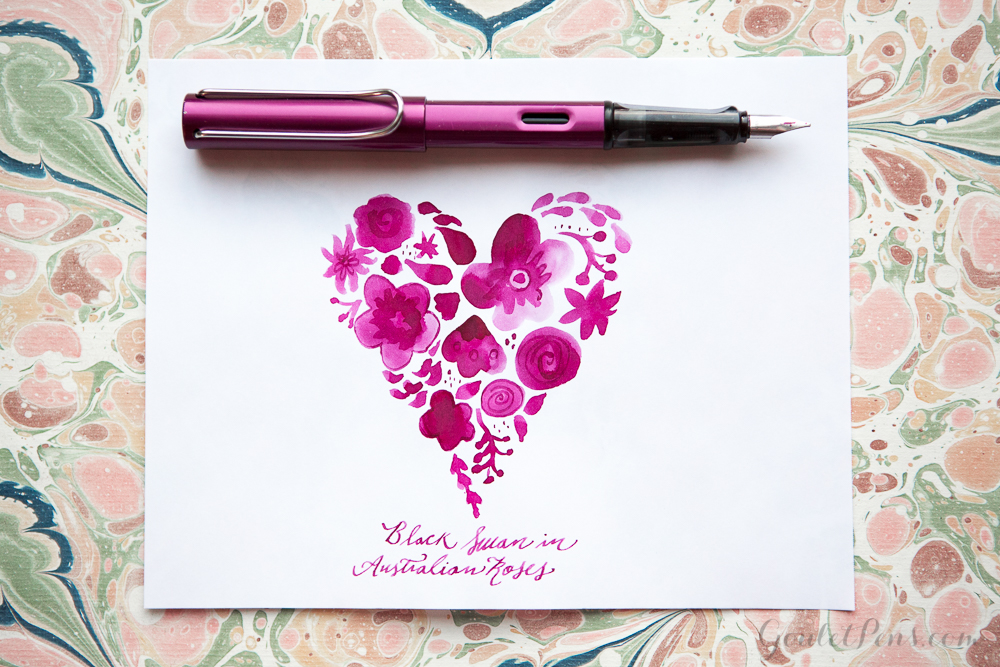 Black Swan in
Australian Roses
GouletPens.com